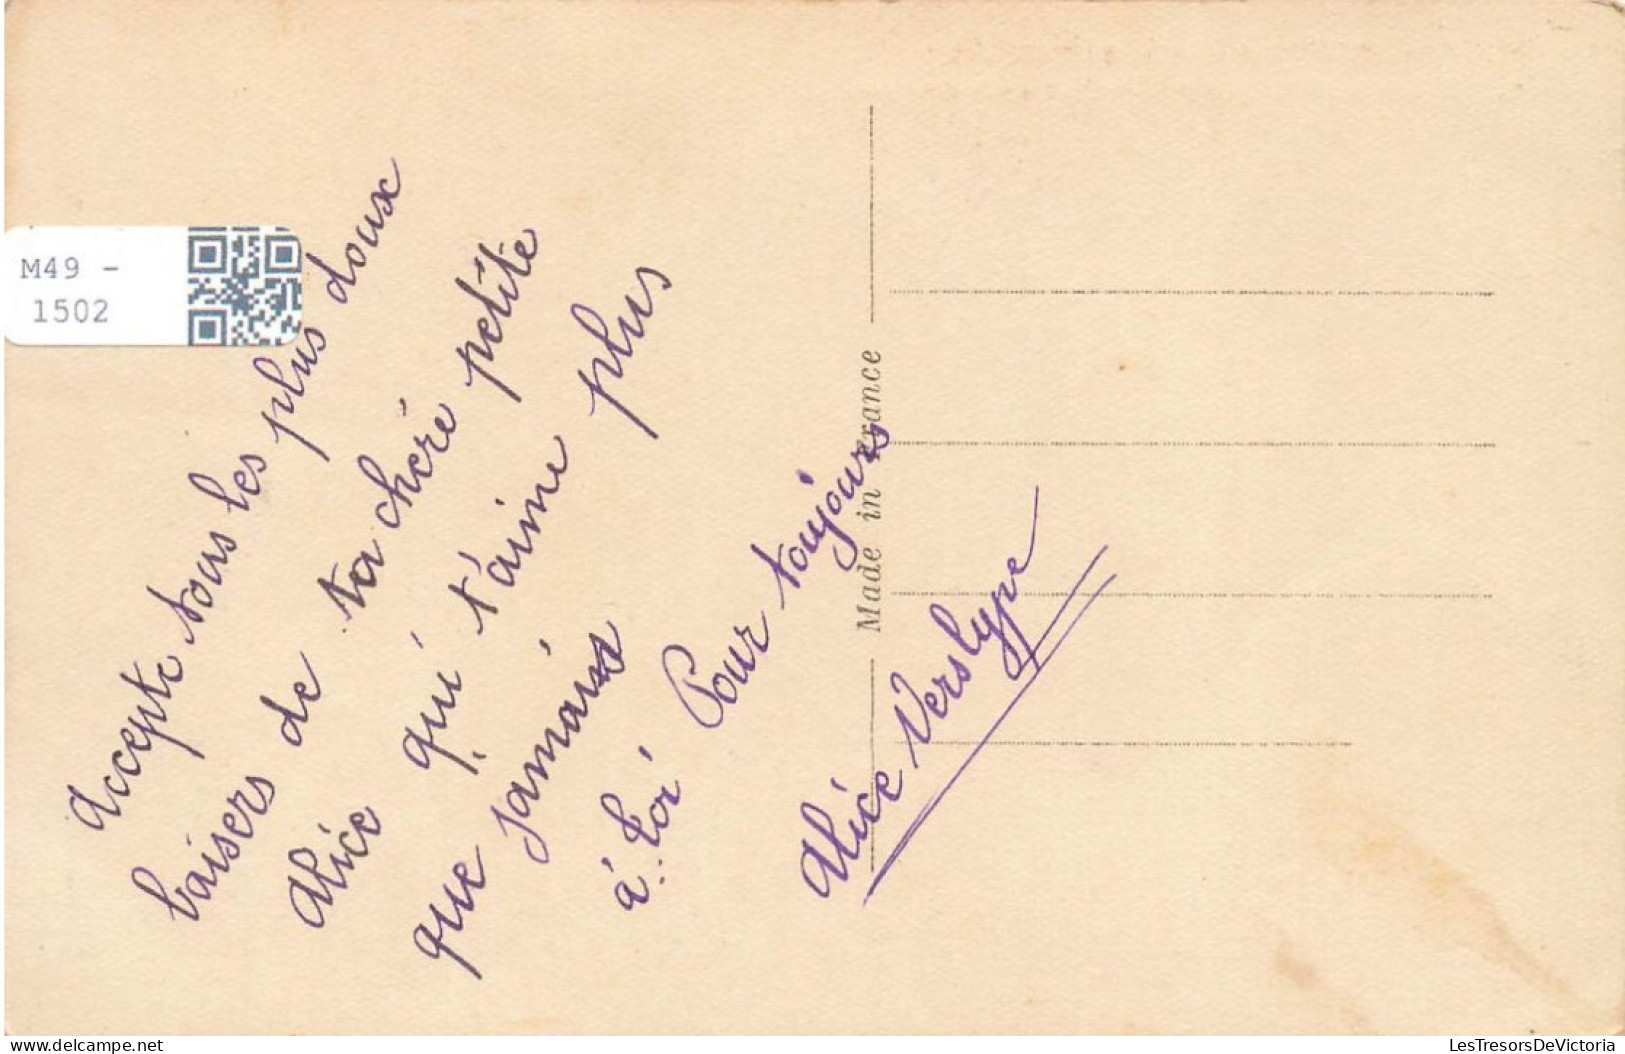 M49 -
1502
accepte tous les plus doux
baisers de ta cheré petite
alice qui t'aime plus
que jamais
á toi Pour toujours
alice Verslype
Made in France
delcampe.net
LesTresorsDeVictoria